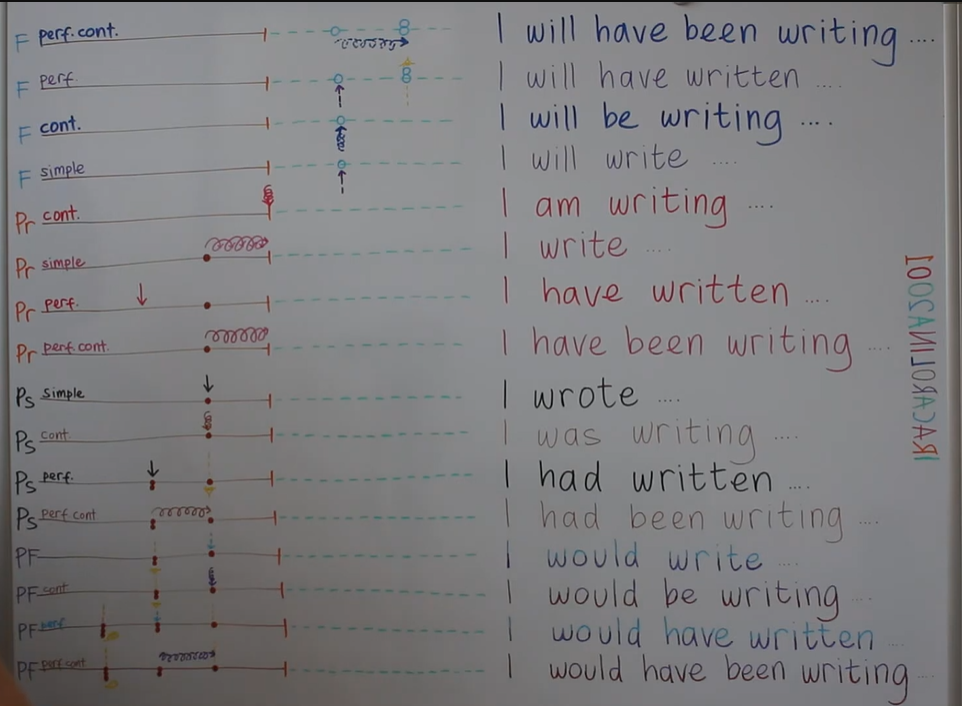 F perf. cont. I will have been writing ....
F perf. I will have written ....
F cont. I will be writing ....
F simple I will write ....
Pr cont. I am writing ....
Pr simple I write ....
Pr perf. I have written ....
Pr perf. cont. I have been writing ....
Ps simple I wrote ....
Ps cont. I was writing ....
Ps perf. I had written ....
Ps perf cont I had been writing ....
PF I would write ....
PF cont I would be writing ....
PF perf I would have written ....
PF perf cont I would have been writing ....